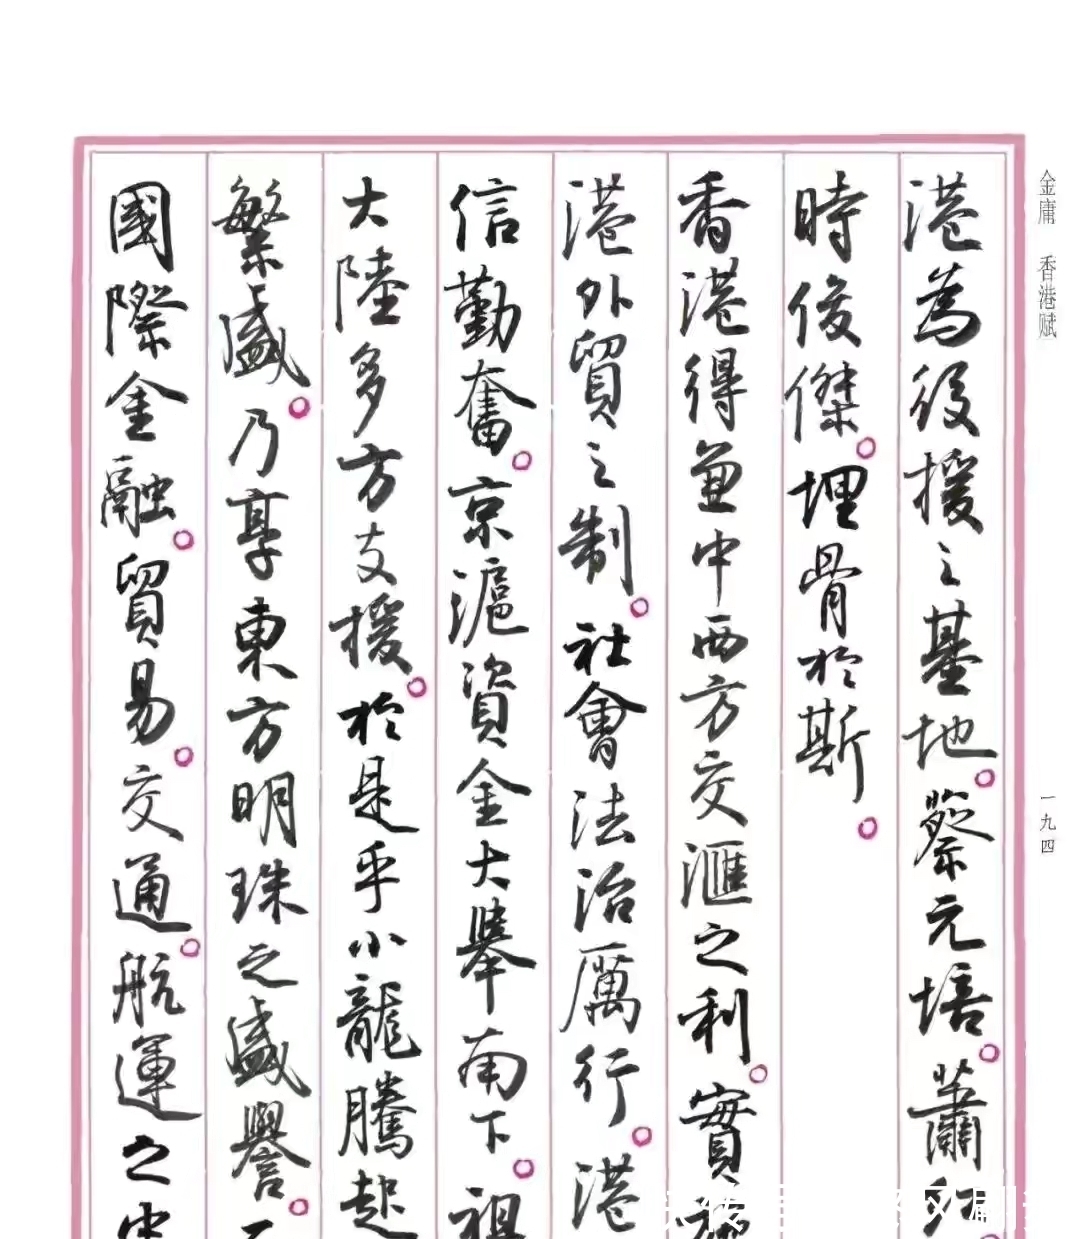 金庸 香港赋
一九四
港為後援之基地。蔡元培。蕭
時俊傑。埋骨於斯。
香港得兼中西方交滙之利。實
港外貿之制。社會法治厲行。港
信勤奮。京滬資金大舉南下。祖
大陸多方支援。於是乎小龍騰起
繁盛。乃享東方明珠之盛譽。
國際金融。貿易。交通。航運之中